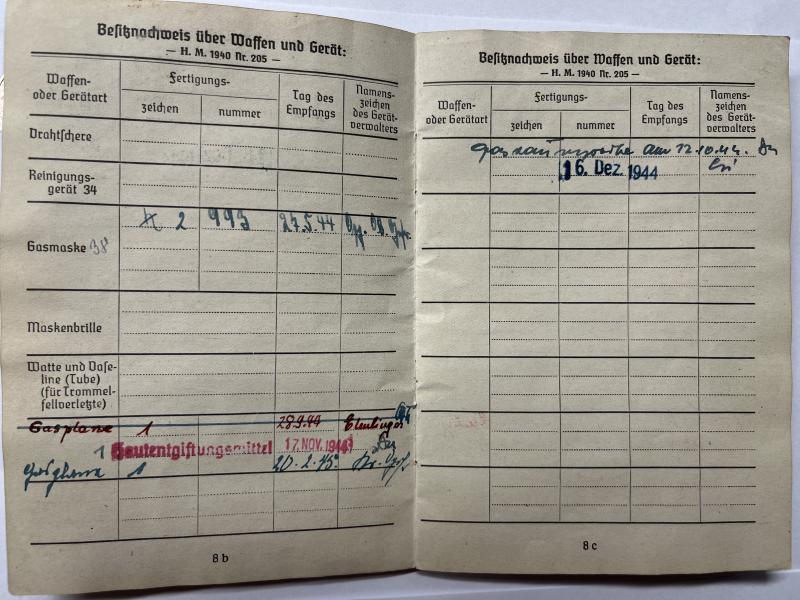 Besitznachweis über Waffen und Gerät:
— H. M. 1940 Nr. 205 —
Waffen-
oder Gerätart
Fertigungs-
zeichen
nummer
Tag des
Empfangs
Namens-
zeichen
des Gerät-
verwalters
Drahtschere
Reinigungs-
gerät 34
Gasmaske 38
2 993 27.5.44
Maskenbrille
Watte und Vase-
line (Tube)
(für Trommel-
fellverletzte)
Gasplane 1 28.9.44
1 Hautentgiftungsmittel 17. NOV. 1944
1 20.2.45.
8 b
Besitznachweis über Waffen und Gerät:
— H. M. 1940 Nr. 205 —
Waffen-
oder Gerätart
Fertigungs-
zeichen
nummer
Tag des
Empfangs
Namens-
zeichen
des Gerät-
verwalters
am 12.10.44.
16. Dez. 1944
8 c